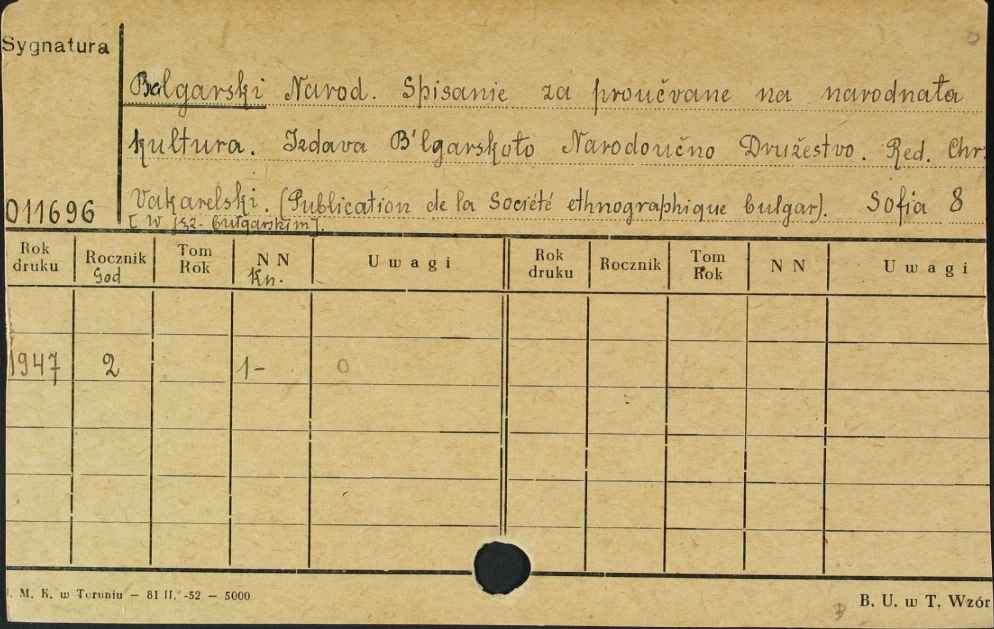 Sygnatura
Bolgarski Narod. Spisanie za proučvane na narodnata
kultura. Izdava B'lgarskoto Narodoučno Družestvo. Red. Chr.
Vakarelski. (Publication de la Société ethnographique bulgar). Sofia 8
011696
[W jęz. bułgarskim].
Rok druku Rocznik God Tom Rok N N Kn. Uwagi Rok druku Rocznik Tom Rok N N Uwagi
1947 2 1- 0
. M. K. w Toruniu — 81 II. -52 — 5000
B. U. w T. Wzór